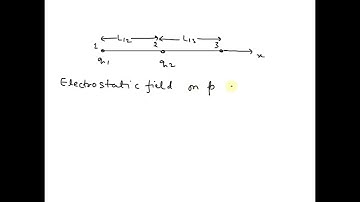 L12 L13
1 2 3 x
q1 q2
Electrostatic field on p